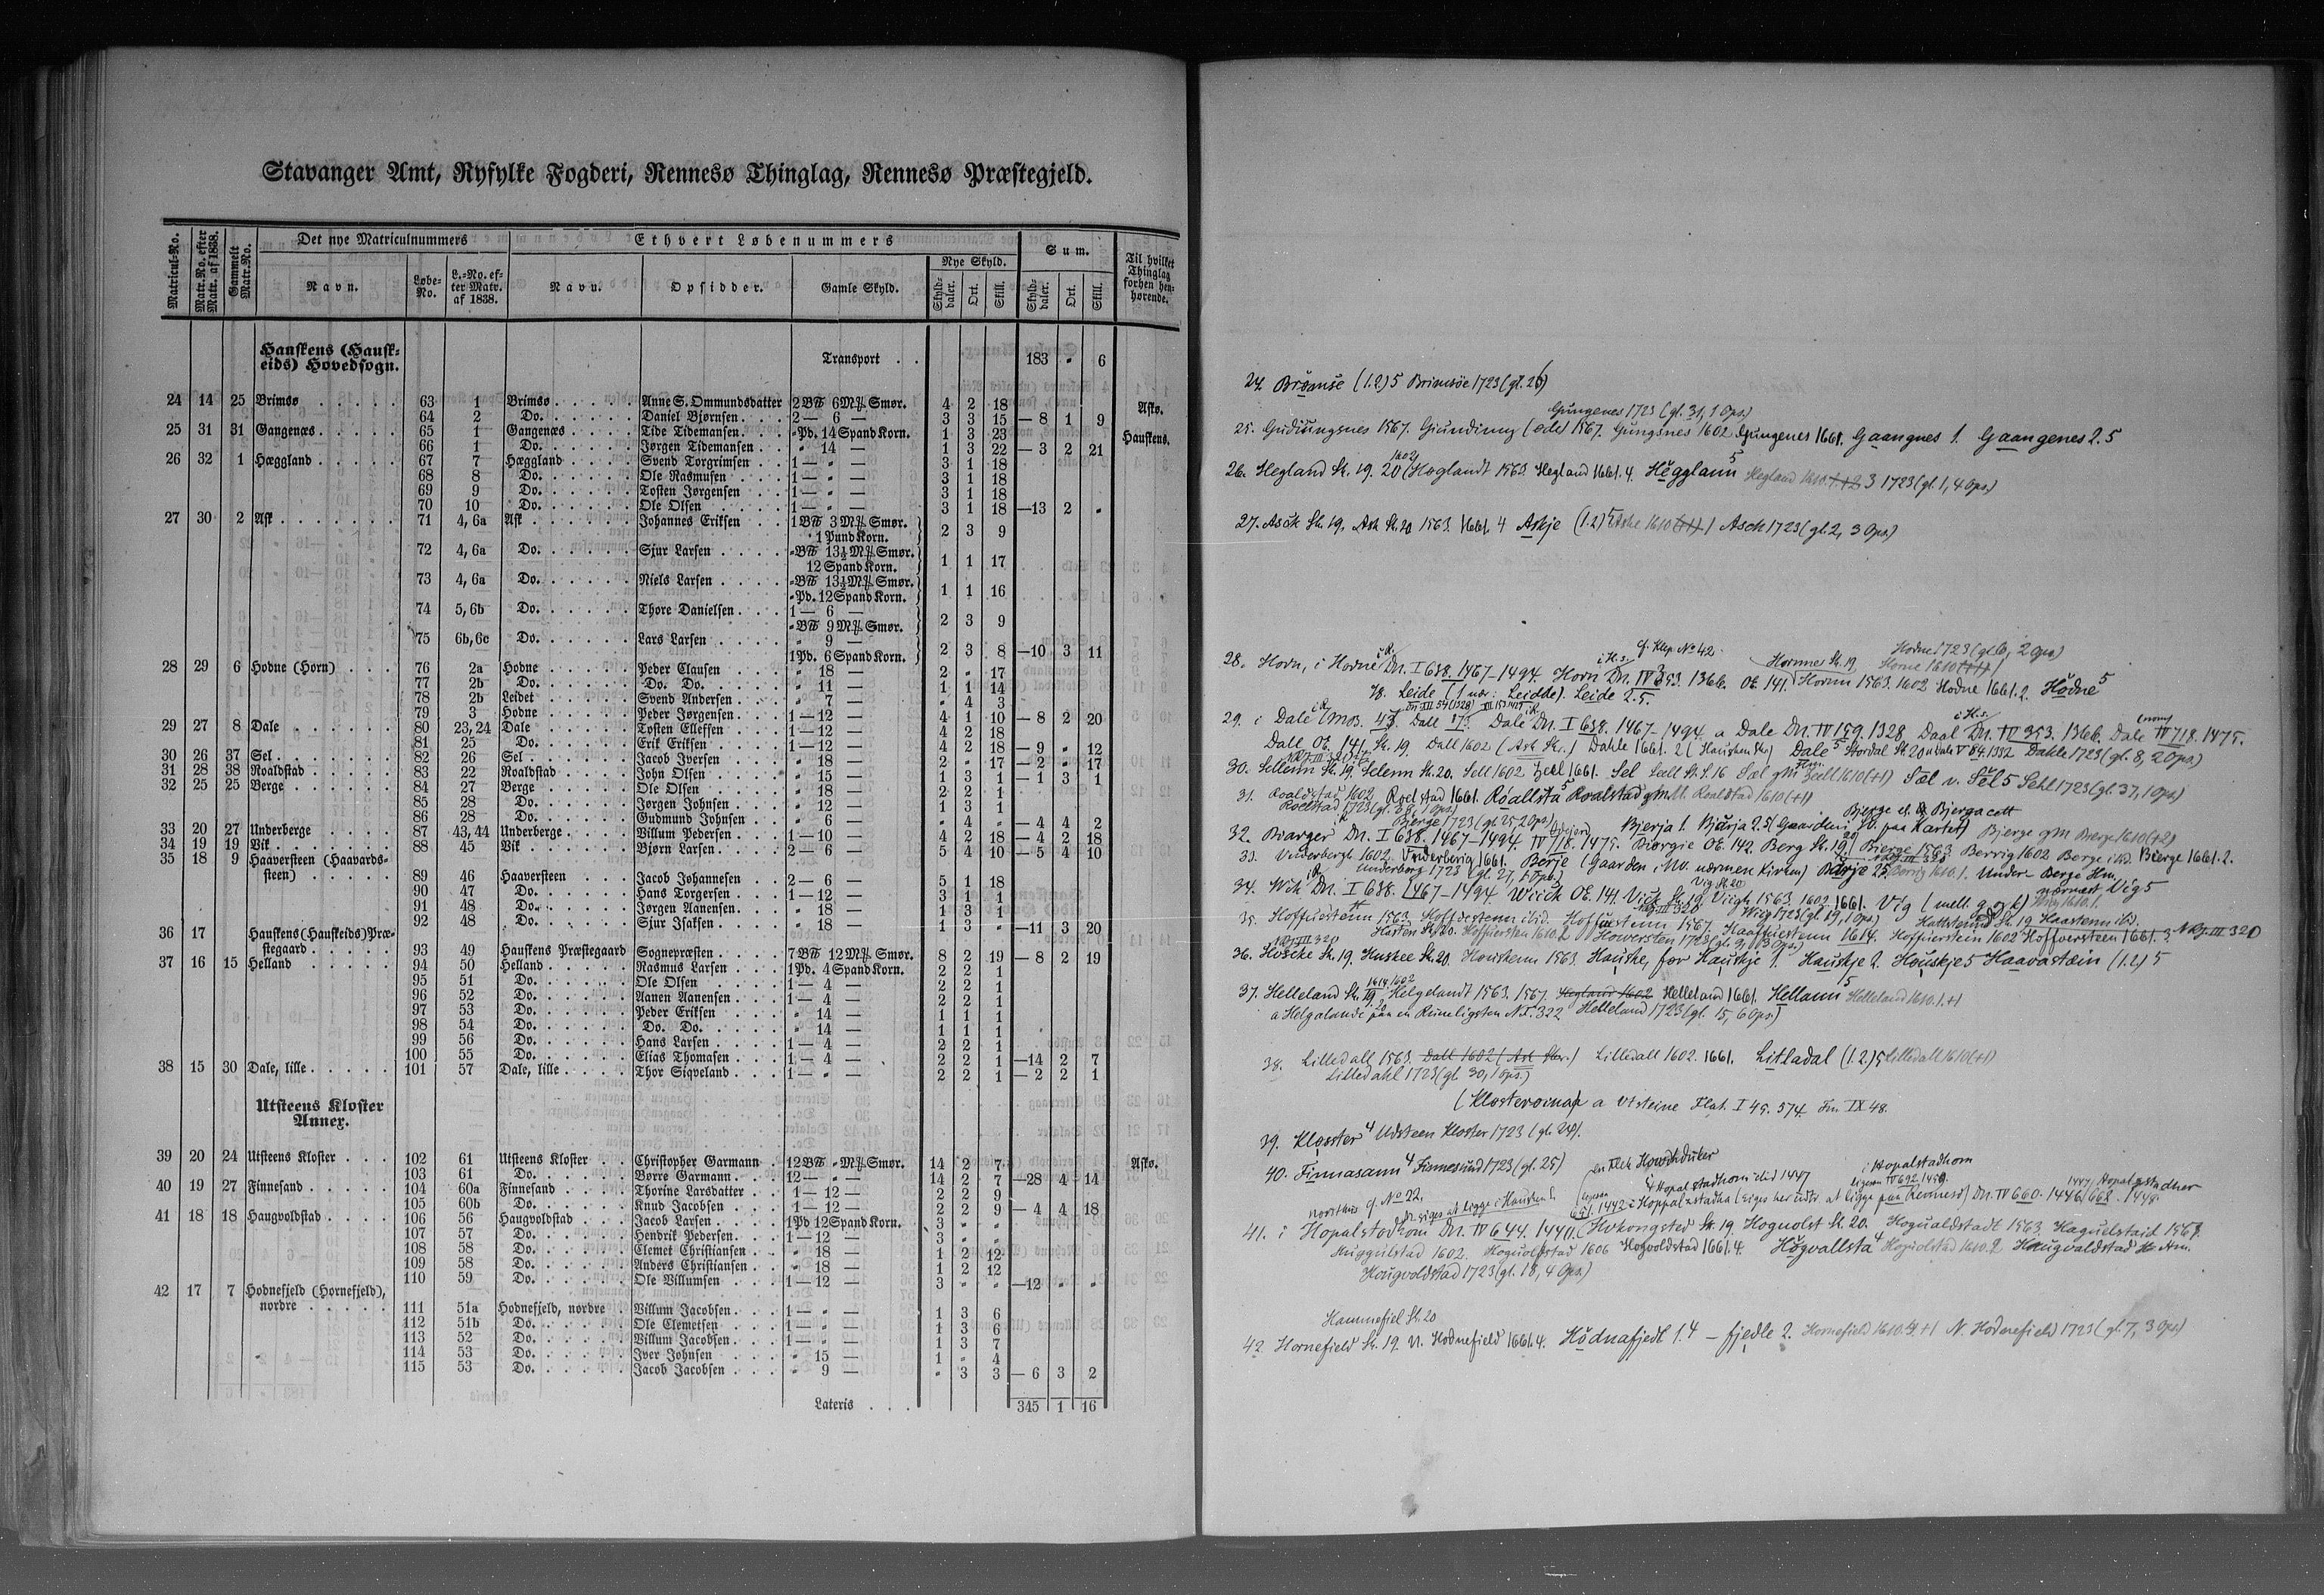 Stavanger Amt, Ryfylke Fogderi, Rennesø Thinglag, Rennesø Præstegjeld.
Matricul-No. Matr.No. efter Matr. af 1838. Gammelt Matr.No. Det nye Matriculnummers Ethvert Løbenummers Sum. Til hvilket Thinglag forhen henhørende.
Navn. Løbe-No. L.-No. efter Matr. af 1838. Navn. Opsidder. Gamle Skyld. Nye Skyld. Skylddaler. Ort. Skill. Skylddaler. Ort. Skill.
Hauskens (Hauskeids) Hovedsogn. Transport . . 183 " 6
24 14 25 Brimsø . . . . . 63 1 Brimsø . . . . . Anne S. Ommundsdatter 2 B℔ 6 M℔ Smør. 4 2 18 Askø.
64 2 Do. . . . . . Daniel Bjørnsen . . . 2 — 6 — 3 3 15 — 8 1 9
25 31 31 Gangenæs . . . . . 65 1 Gangenæs . . . . Tide Tidemansen . . . " Pd. 14 Spand Korn. 1 3 23 Hauskens.
66 1 Do. . . . . . Jørgen Tidemansen . . " 14 — 1 3 22 — 3 2 21
26 32 1 Hæggland . . . . . 67 7 Hæggland . . . . Svend Torgrimsen . . 1 — " — 3 1 18
68 8 Do. . . . . . Ole Rasmusen . . . . 1 — " — 3 1 18
69 9 Do. . . . . . Tosten Jørgensen . . 1 — " — 3 1 18
70 10 Do. . . . . . Ole Olsen . . . . . 1 — " — 3 1 18 —13 2 "
27 30 2 Ask . . . . . . . 71 4, 6a Ask . . . . . . Johannes Eriksen . . 1 B℔ 3 M℔ Smør.
" 1 Pund Korn. 2 3 9
72 4, 6a Do. . . . . . Sjur Larsen . . . . . " B℔ 13½ M℔ Smør.
12 Spand Korn. 1 1 17
73 4, 6a Do. . . . . . Niels Larsen . . . . " B℔ 13½ M℔ Smør.
" Pd. 12 Spand Korn. 1 1 16
74 5, 6b Do. . . . . . Thore Danielsen . . . 1 — 6 —
" B℔ 9 M℔ Smør. 2 3 9
75 6b, 6c Do. . . . . . Lars Larsen . . . . . " 9 —
1 Pd. 6 Spand Korn. 2 3 8 —10 3 11
28 29 6 Hodne (Horn) . . . 76 2a Hodne . . . . . Peder Clausen . . . . " 18 — 2 " 17
77 2b Do. . . . . . Do. Do. . . . . . " 11 — 1 1 14
78 2b Leidet . . . . . Svend Andersen . . . " 7 — " 4 3
79 3 Hodne . . . . . Peder Jørgensen . . . 1 — 12 — 4 1 10 — 8 2 20
29 27 8 Dale . . . . . . 80 23, 24 Dale . . . . . . Tosten Elleffsen . . . 1 — 12 — 4 2 18
81 25 Do. . . . . . Erik Eriksen . . . . 1 — 12 — 4 2 18 — 9 " 12
30 26 37 Sel . . . . . . . 82 26 Sel . . . . . . Jacob Iversen . . . . " 18 — 2 " 17 — 2 " 17
31 28 38 Roaldstad . . . . . 83 22 Roaldstad . . . . John Olsen . . . . . " 15 — 1 3 1 — 1 3 1
32 25 25 Berge . . . . . . 84 27 Berge . . . . . Ole Olsen . . . . . " 18 — 2 2 1
85 28 Do. . . . . . Jørgen Johnsen . . . " 12 — 1 3 1
86 28 Do. . . . . . Gudmund Johnsen . . " 6 — " 4 " — 4 4 2
33 20 27 Underberge . . . . 87 43, 44 Underberge . . . . Villum Pedersen . . . 1 — 10 — 4 2 18 — 4 2 18
34 19 19 Vik . . . . . . . 88 45 Vik . . . . . . Bjørn Larsen . . . . 2 — 6 — 5 4 10 — 5 4 10
35 18 9 Haaversteen (Haavards-
steen) . . . . . 89 46 Haaversteen . . . Jacob Johannesen . . 2 — 6 — 5 1 18
90 47 Do. . . . . . Hans Torgersen . . . 1 — 12 — 3 1 1
91 48 Do. . . . . . Jørgen Aanensen . . . " 18 — 1 3 1
92 48 Do. . . . . . Sjur Isaksen . . . . " 18 — 1 3 " —11 3 20
36 17 Hauskens (Hauskeids) Præ-
stegaard . . . . . 93 49 Hauskens Præstegaard Sognepræsten . . . . 7 B℔ 12 M℔ Smør. 8 2 19 — 8 2 19
37 16 15 Helland . . . . . 94 50 Helland . . . . . Rasmus Larsen . . . 1 Pd. 4 Spand Korn. 2 2 1
95 51 Do. . . . . . Ole Olsen . . . . . 1 — 4 — 2 2 1
96 52 Do. . . . . . Aanen Aanensen . . . 1 — 4 — 2 2 1
97 53 Do. . . . . . Peder Eriksen . . . " 14 — 1 1 1
98 54 Do. . . . . . Do. Do. . . . . . " 14 — 1 1 1
99 56 Do. . . . . . Hans Larsen . . . . 1 — 4 — 2 2 1
100 55 Do. . . . . . Elias Thomasen . . . 1 — 4 — 2 2 1 —14 2 7
38 15 30 Dale, lille . . . . . 101 57 Dale, lille . . . . Thor Siqveland . . . 1 — " — 2 2 1 — 2 2 1
Utsteens Kloster Annex.
39 20 24 Utsteens Kloster . . . 102 61 Utsteens Kloster . . Christopher Garmann . 12 B℔ " M℔ Smør. 14 2 7 Askø.
103 61 Do. . . . . . Børre Garmann . . . 12 — " — 14 2 7 —28 4 14
40 19 27 Finnesand . . . . . 104 60a Finnesand . . . . Thorine Larsdatter . . 1 — 12 — 2 2 9
105 60b Do. . . . . . Knud Jacobsen . . . 1 — 12 — 2 2 9 — 4 4 18
41 18 18 Haugvoldstad . . . . 106 56 Haugvoldstad . . . Jacob Larsen . . . . 1 Pd 12 Spand Korn. 3 " "
107 57 Do. . . . . . Hendrik Pedersen . . 1 — 12 — 3 " "
108 58 Do. . . . . . Clemet Christiansen . . " 18 — 1 2 12
109 58 Do. . . . . . Anders Christiansen . . " 18 — 1 2 12
110 59 Do. . . . . . Ole Villumsen . . . 1 — 12 — 3 " " —12 " "
42 17 7 Hodnefjeld (Hornefjeld),
nordre . . . . . 111 51a Hodnefjeld, nordre . Villum Jacobsen . . . 1 — " — 1 3 6
112 51b Do. . . . . . Ole Clemetsen . . . 1 — " — 1 3 6
113 52 Do. . . . . . Villum Jacobsen . . . 1 — " — 1 3 7
114 53 Do. . . . . . Iver Johnsen . . . . " 15 — 1 " 4
115 53 Do. . . . . . Jacob Jacobsen . . . " 9 — " 3 3 — 6 3 2
Lateris . . . 345 1 16
24. Brømse (1.2.) 5 Brimsöe 1723 (gl. 26)
Gungenes 1723 (gl. 31, 1 Ops.)
25. Gudiungsnes 1567. Giunding 1567. Gungsnes 1602 Gungenes 1661. Gaangnes 1. Gaangenes 2.5
26. Hegland St. 19. 20 (Hæglandt 1563 Hegland 1661. 4. Hëgglann 5 Hegland 1610. 3 1723 (gl. 1, 4 Ops.)
27. Asck St. 19. Ask St. 20 1563. 1661. 4 Askje (1.2) 5 Aske 1610 Asch 1723 (gl. 2, 3 Ops.)
cf. Klp. No 42. Hodne 1723 (gl. 6, 2 Ops)
Hornnes St. 19 Horne 1610
28. Horn, i Horne Dn. I 638. 1467-1494. Horn Dn. IV 353. 1366. OE. 141. Hornn 1563. 1602 Hodne 1661. 2. Hödne 5
78. Leide (1 nær: Leidde). Leide 2.5.
29. i Dale (Mos. 47. Dall 17. Dale Dn. I 638. 1467-1494. a Dale Dn. IV 159. 1328. Daal Dn. IV 353. 1366. Dale IV 718. 1475.
Dall OE. 141. St. 19. Dall 1602 (Ask Skr.) Dahle 1661. 2 (Hausken Skr) Dale 5 Stordal St. 20 Dahle 1723 (gl. 8, 2 Ops.)
30. Sellenn St. 19. Selenn St. 20. Sell 1602 Zeel 1661. Sel Zeell 1610 (+1) Sæl v. Sël 5 Sehl 1723 (gl. 37, 1 Ops)
31. Roaldstad 1602. Roelstad 1661. Róallsta 5 Roalstad gm. M. Roalstad 1610 (+1)
Roelstad 1723 (gl. 38, 1 Ops.)
Bierge 1723 (gl. 25, 2 Ops) Bjerge el. Bjerga
32. Biarger Dn. I 638. 1467-1494. IV 718. 1475. Biørgie OE. 142. Berg St. 19. Bierge 1563. Berrig 1602 Berge ibid. Bierge 1661. 2.
33. Underbergh 1602. Underberig 1661. Berje (Gaarden i NV. nærmen Kirken) Berrig 1610. 1. Under Berge Hm.
Underberg 1723 (gl. 27, 1 Ops.)
34. Wik Dn. I 638. 1467-1494. Wiick OE. 141. Vick St. 19. Viigh 1563. 1602 1661. Vig (mell. g og k) nærmest Vig 5
Wiig 1723 (gl. 19, 1 Ops.)
35. Hoffuestenn 1563. Hoffuestenn ibid. 1567. 1614. Hoffuerstein 1602 Hoffversteen 1661. 3. NRJ. III 320
Howersten 1723 (gl. 9, 3 Ops)
36. Hoscke St. 19. Huskee St. 20. Houskenn 1563. Hauske, før Hauskje 1. Hauskje 2. Houskje 5 Haavastæin (1.2) 5
37. Helleland St. 19. Helgelandt 1563. 1567. Hegland 1602 Helleland 1661. Hellann 5 Helleland 1610. 1. +1
a Helgalande N.I. 322 Helleland 1723 (gl. 15, 6 Ops)
38. Lilledall 1563. Dall 1602 (Ask Skr.) Lilledall 1602. 1661. Litladal (1.2.) 5 Lilledall 1610 (+1)
Lilledahl 1723 (gl. 30, 1 Ops.)
a Utsteine Flat. I 45. 574. Fm. IX 48.
39. Klosster 4 Udsteen Kloster 1723 (gl. 24).
40. Finnasann 4 Finnesund 1723 (gl. 25)
cf. No 22.
41. i Hopalstodhom Dn. IV 644. 1440. (Hokongsted St. 19. Hoguolst St. 20. Hogualdstadt 1563. Haguelstaid 1567.
1602. Hoguolstad 1606 Hogvoldstad 1661. 4. Högvallsta 4 Hoguolstad 1610. 2 Haugvaldstad
Hougvoldstad 1723 (gl. 18, 4 Ops.)
Hannnefiel St. 20
42 Hornefield St. 19. N. Hodnefield 1661. 4. Hödnafjedl 1.4 — fjedle 2. Hornefield 1610. 4. +1 N. Hodnefield 1723 (gl. 7, 3 Ops)